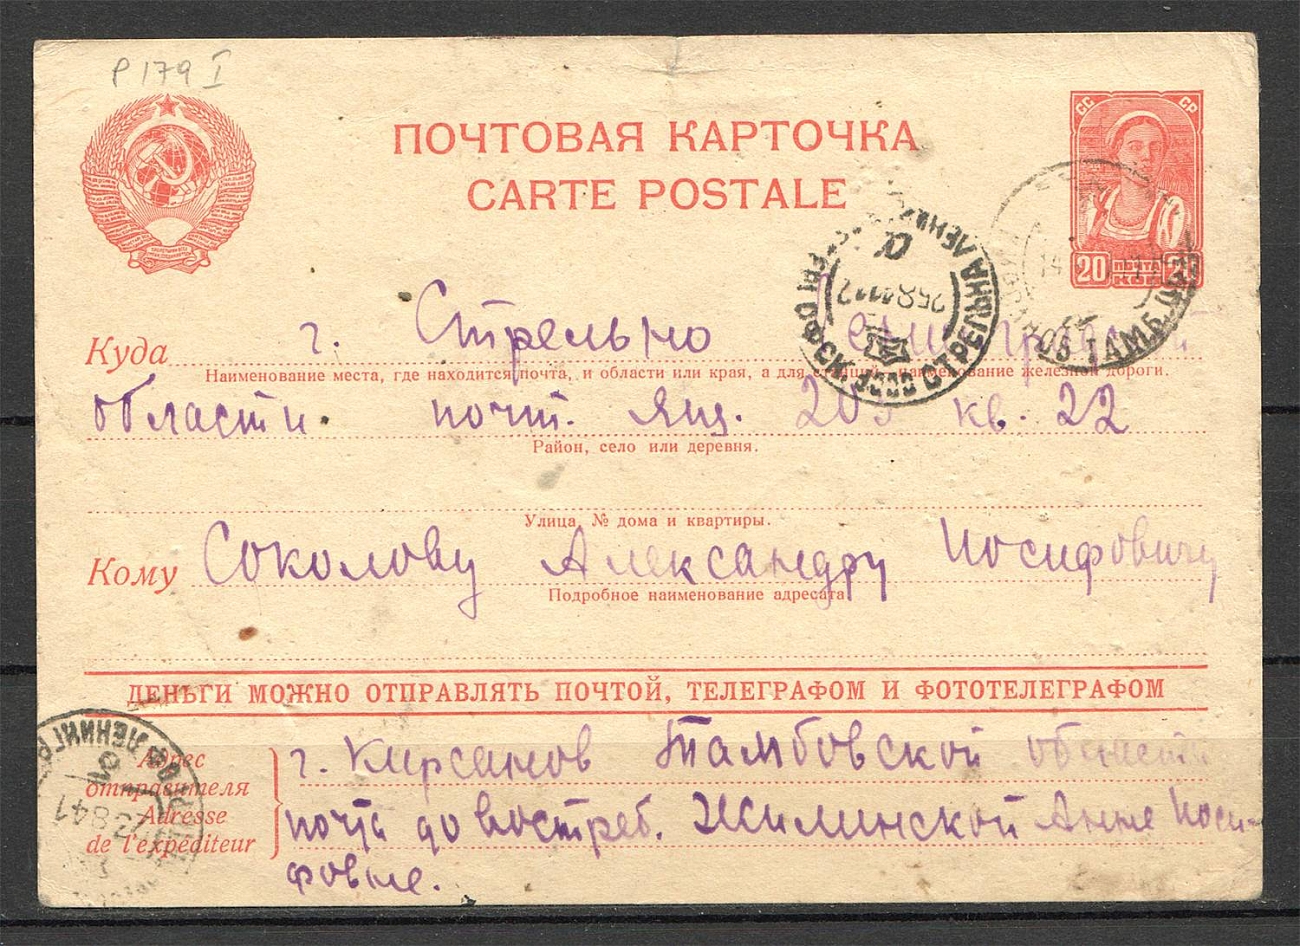 P 179 I
ПОЧТОВАЯ КАРТОЧКА
CARTE POSTALE
СС СР
20 ПОЧТА КОП 20
Куда г. Стрельно
Наименование места, где находится почта, и области или края, а для станций, наименование железной дороги.
области почт. ящ. 203 кв. 22
Район, село или деревня.
Улица, № дома и квартиры.
Кому Соколову Александру Иосифовичу
Подробное наименование адресата
ДЕНЬГИ МОЖНО ОТПРАВЛЯТЬ ПОЧТОЙ, ТЕЛЕГРАФОМ И ФОТОТЕЛЕГРАФОМ
Адрес отправителя
Adresse de l'expéditeur
г. Кирсанов Тамбовской области
почта до востреб. Жилинской Анне Иоси-
фовне.
25 8 41 12
ТАМБ.
ЛЕНИНГР
23 8 41